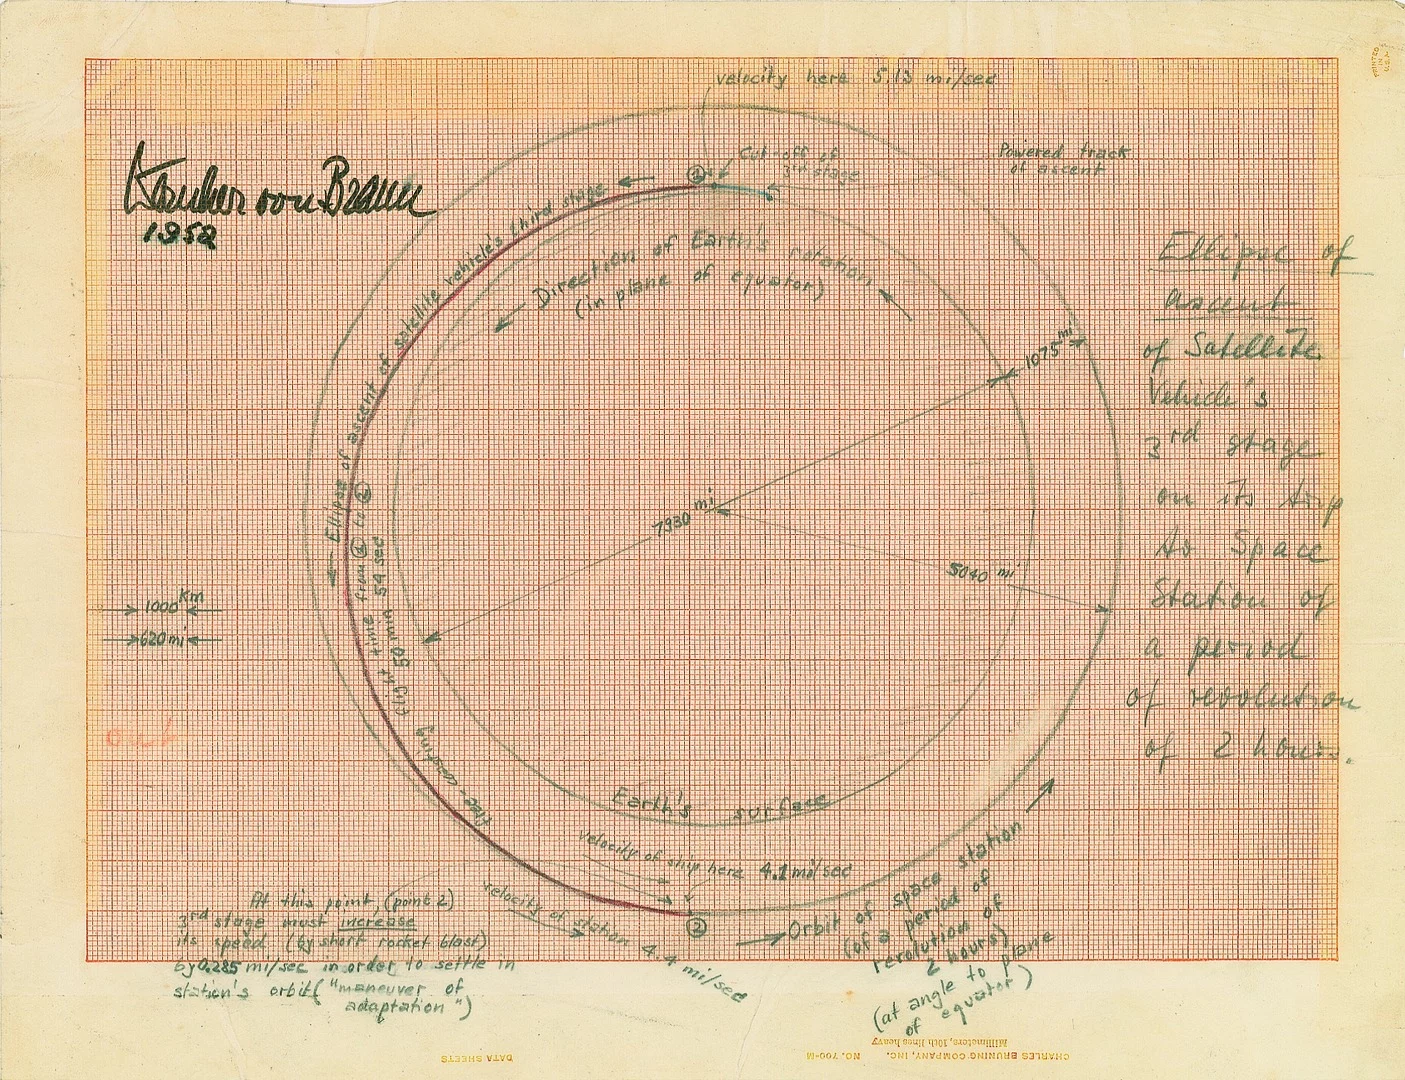 PRINTED
IN
U.S.A.
velocity here 5.13 mi/sec
Wernher von Braun
1952
①
Cut-off of
3rd stage
Powered track
of ascent
← Ellipse of ascent of satellite vehicle's third stage ←
Direction of Earth's rotation
(in plane of equator)
1075 mi
7930 mi
5040 mi
Ellipse of
ascent
of Satellite
Vehicle's
3rd stage
on its trip
to Space
Station of
a period
of revolution
of 2 hours.
free-coasting flight time from ① to ②
50 min 54 sec
1000 km
620 mi
out
Earth's surface
velocity of ship here 4.1 mi/sec
velocity of station 4.4 mi/sec
②
At this point (point 2)
3rd stage must increase
its speed (by short rocket blast)
by 0.285 mi/sec in order to settle in
station's orbit ("maneuver of
adaptation")
Orbit of space station
(of a period of
revolution of
2 hours)
(at angle to plane
of equator)
DATA SHEETS
CHARLES BRUNING COMPANY, INC. NO. 700-M
Millimeters, 10th lines heavy